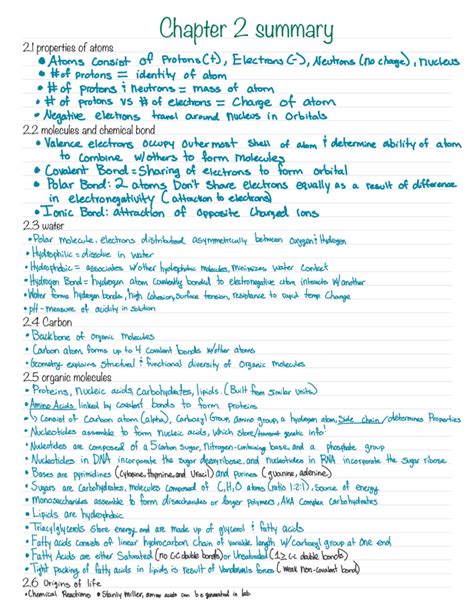 Chapter 2 summary
2.1 properties of atoms
• Atoms consist of Protons(+), Electrons (-), Neutrons (no charge), nucleus
• # of protons = identity of atom
• # of protons & neutrons = mass of atom
• # of protons vs # of electrons = Charge of atom
• Negative electrons travel around Nucleus in Orbitals
2.2 molecules and chemical bond
• Valence electrons occupy Outermost Shell of atom & determine ability of atom
to Combine w/others to form molecules
• Covalent Bond = Sharing of electrons to form orbital
• Polar Bond: 2 atoms Don't Share electrons equally as a result of difference
in electronegativity (attraction to electrons)
• Ionic Bond: attraction of Opposite Charged Ions
2.3 water
• Polar molecule, electrons distributed asymmetrically between Oxygen & Hydrogen
• Hydrophilic = dissolve in Water
• Hydrophobic = associates w/other hydrophobic molecules, minimizes water Contact
• Hydrogen Bond = hydrogen atom Covalently bonded to electronegative atom interacts w/another
• Water forms hydrogen bonds, high Cohesion, Surface tension, resistance to rapid temp Change
• pH - measure of acidity in solution
2.4 Carbon
• Backbone of Organic Molecules
• Carbon atom forms up to 4 Covalent bonds w/other atoms
• Geometry explains Structural & functional diversity of Organic Molecules
2.5 organic molecules
• Proteins, Nucleic acids, Carbohydrates, lipids. (Built from Similar Units)
• Amino Acids linked by Covalent bonds to form proteins
↳ Consist of Carbon atom (alpha), Carboxyl Group, amino group, a hydrogen atom, Side chain / determines Properties
• Nucleotides assemble to form Nucleic acids, which Store/transmit genetic info
• Nucleotides are composed of a 5 Carbon Sugar, Nitrogen-containing base, and a phosphate group
• Nucleotides in DNA incorporate the Sugar deoxyribose, and nucleotides in RNA incorporate the sugar ribose
• Bases are pyrimidines (Cytosine, thymine, and Uracil) and purines (guanine, adenine)
• Sugars are Carbohydrates, molecules composed of C, H, O atoms (ratio 1:2:1). Source of energy
• Monosaccharides assemble to form disaccharides or longer polymers, AKA Complex Carbohydrates
• Lipids are hydrophobic
• Triacylglycerols Store energy and are made up of glycerol & fatty acids
• Fatty acids Consists of linear hydrocarbon Chain of Variable length w/Carboxyl group at One end
• Fatty Acids are either Saturated (no CC double bonds) or Unsaturated (1≥ CC double bonds)
• Tight packing of fatty acids in lipids is result of Vanderwals forces (weak non-covalent bond)
2.6 Origins of life
• Chemical Reactions • Stanly Miller, amino acids can be generated in lab